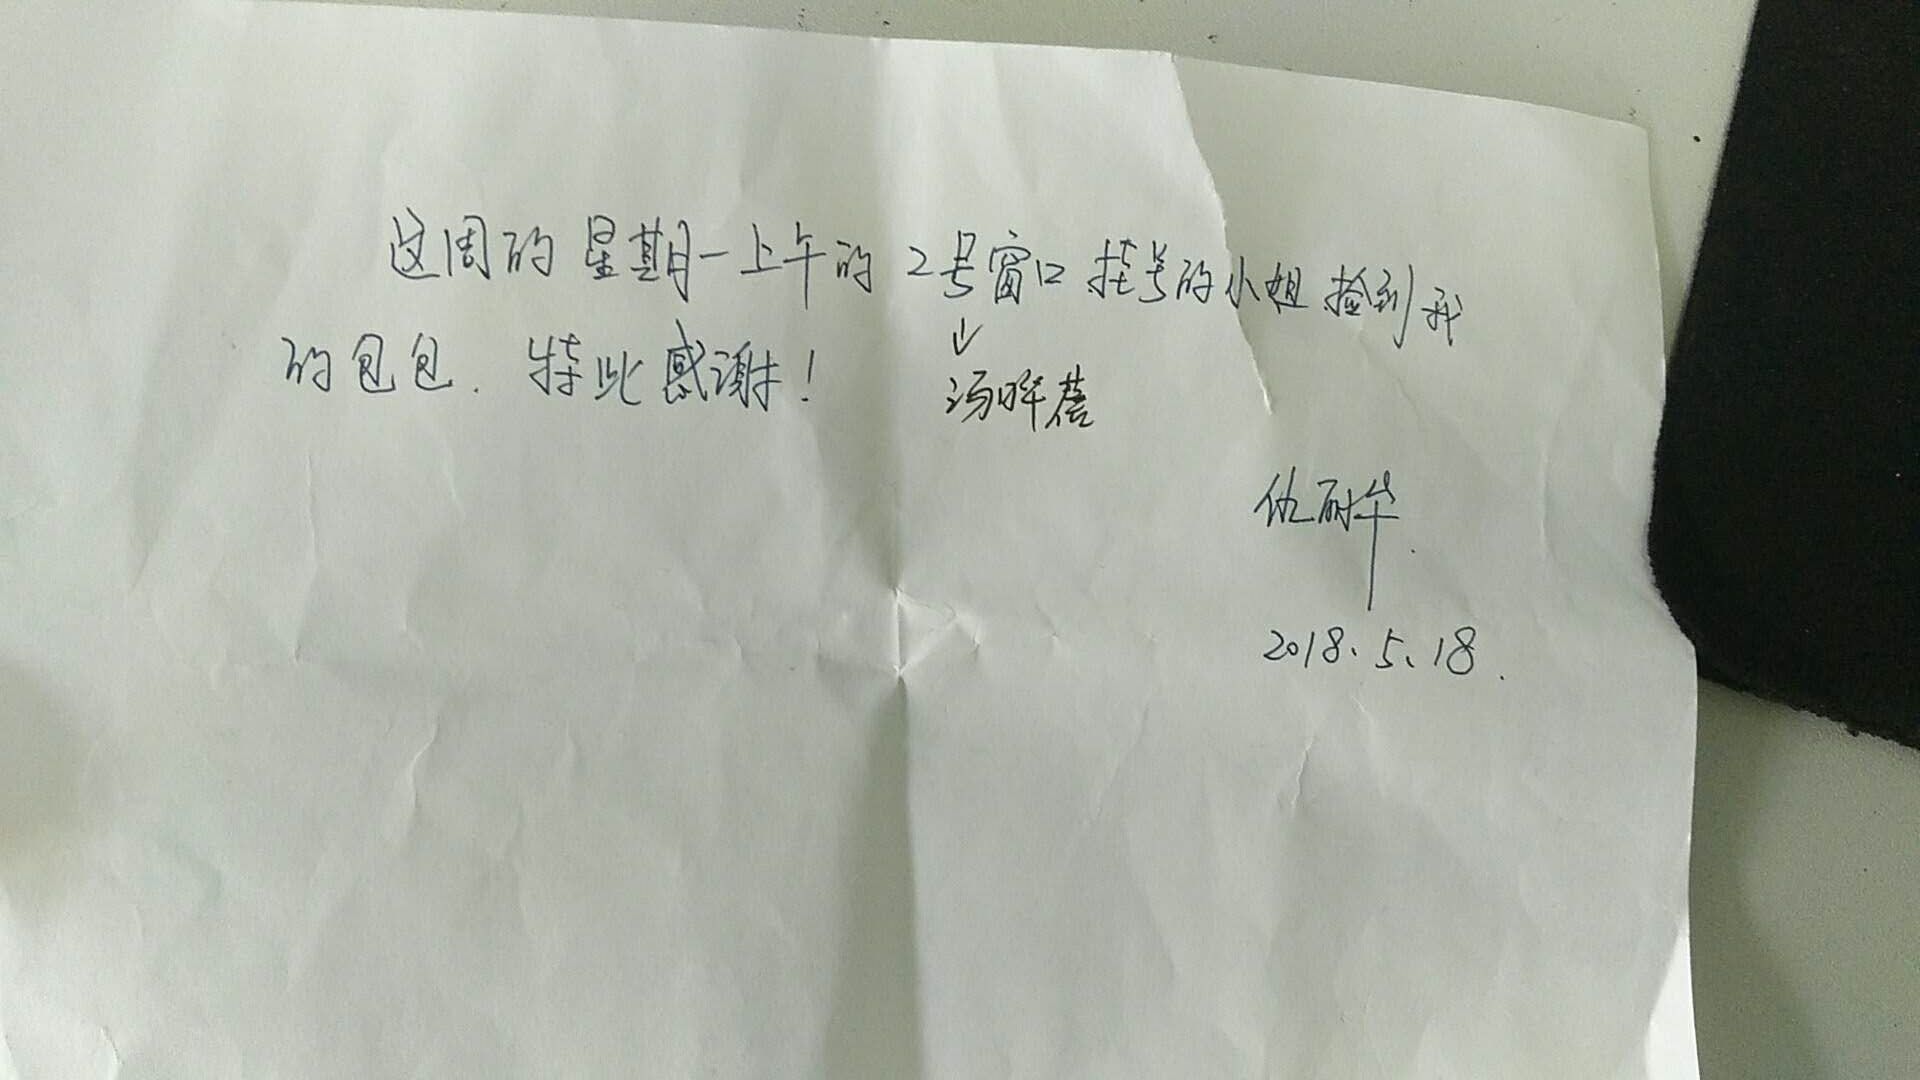 这周的星期一上午的2号窗口挂号的小姐捡到我
的包包.特此感谢!
↓
汤晔蓓
仇耐华.
2018、5、18.